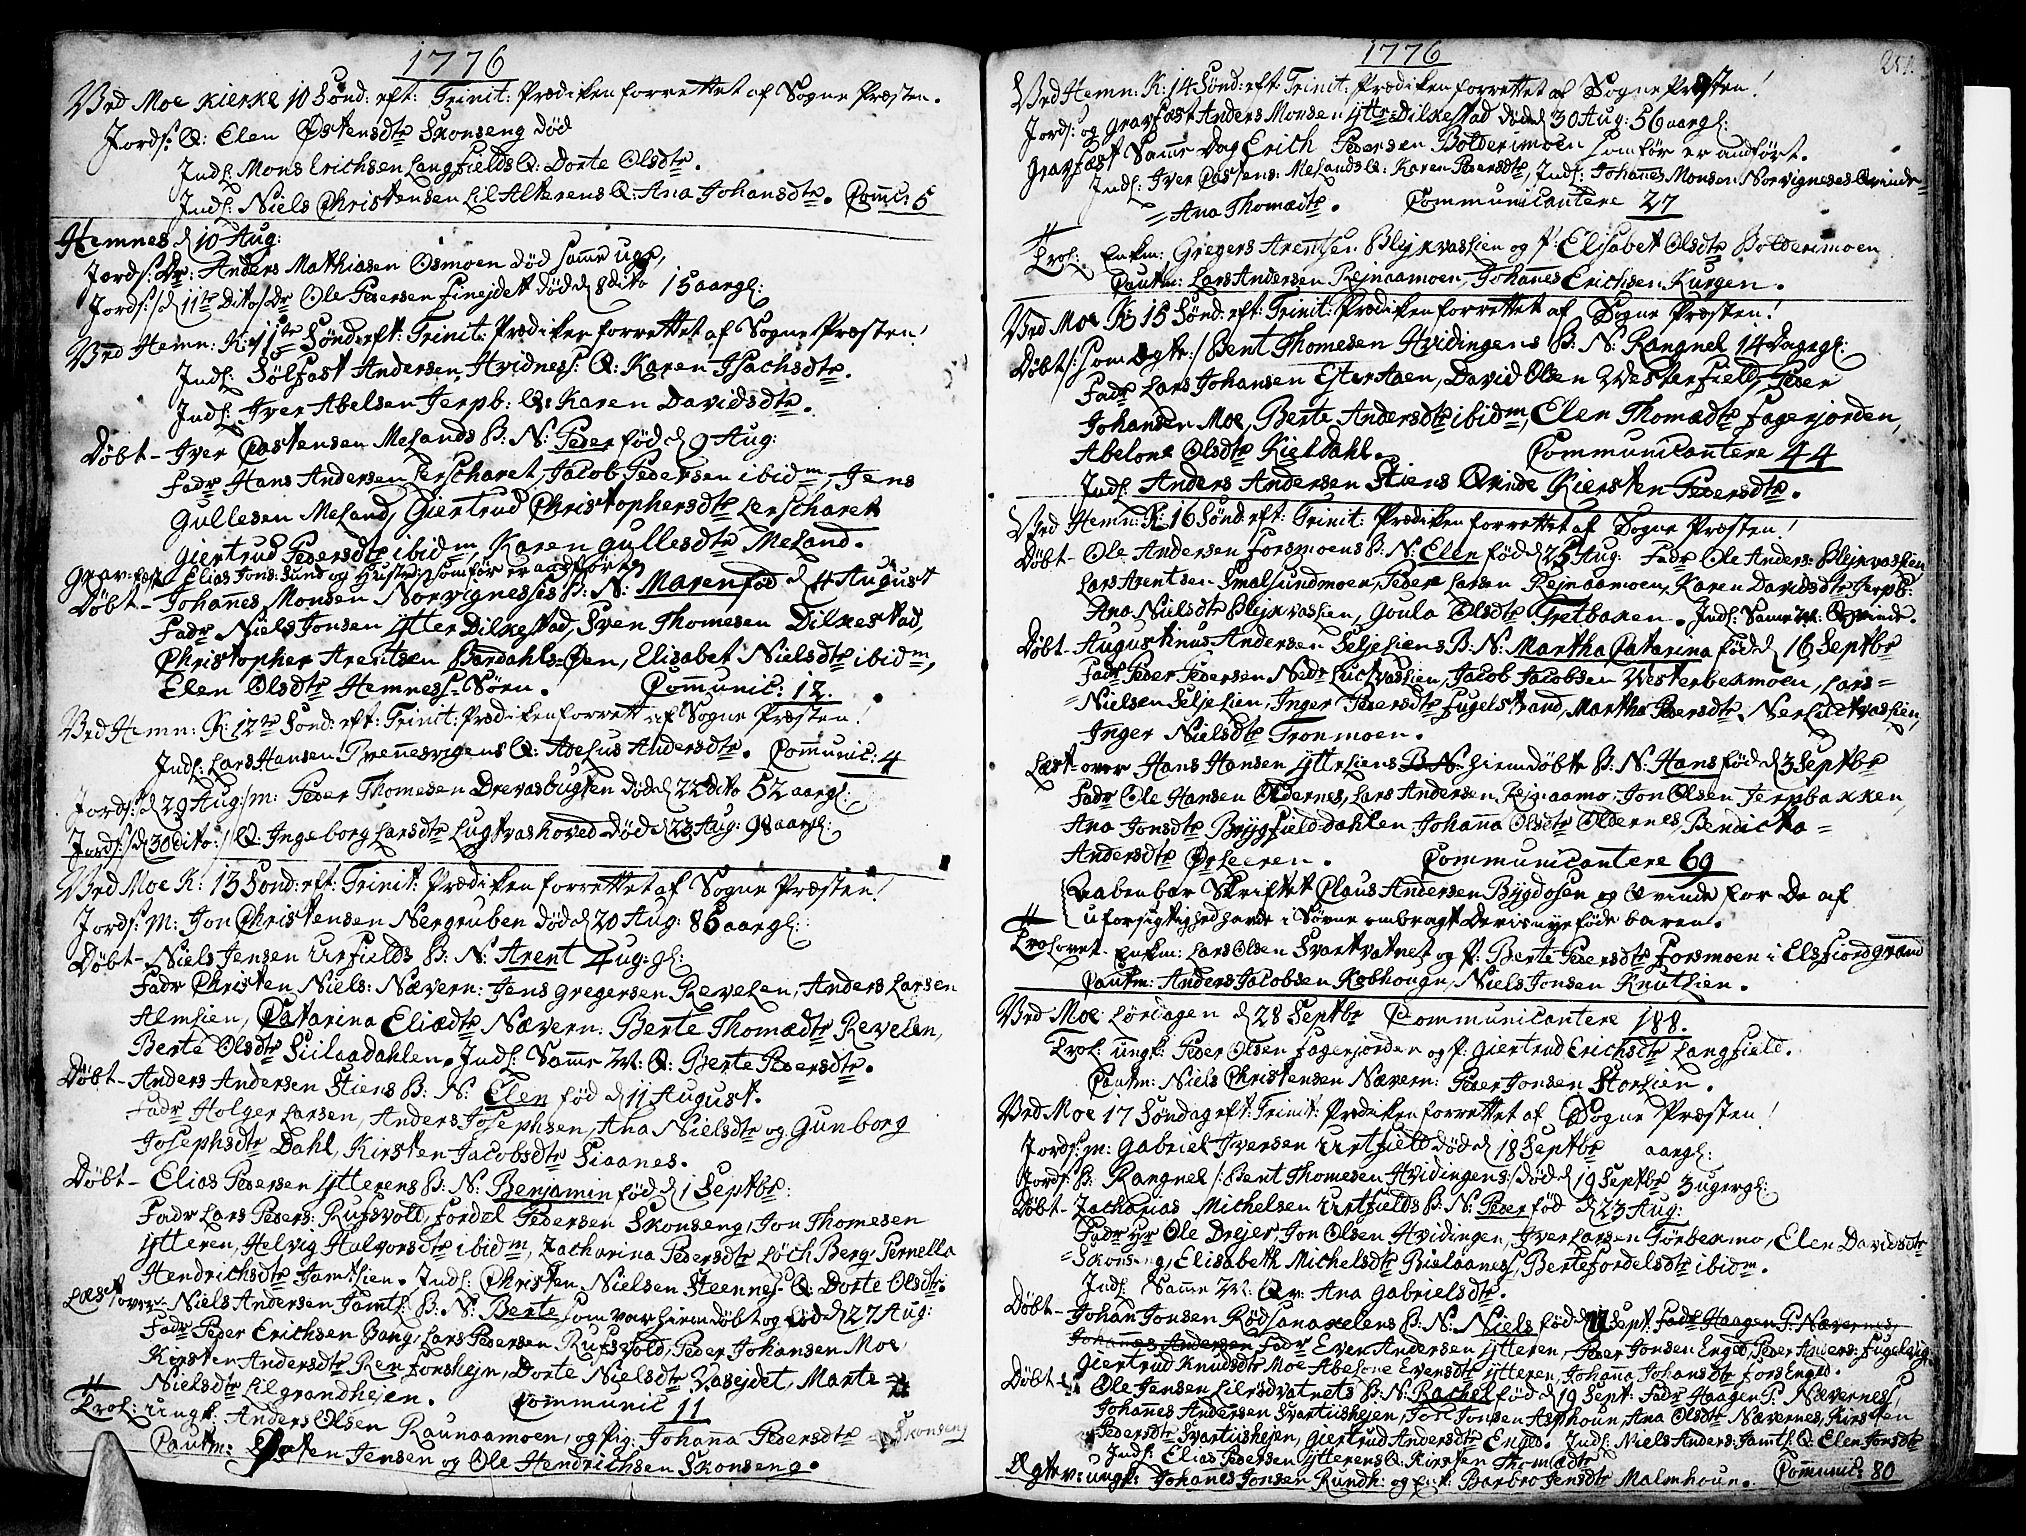 1776
Ved Moe Kierke 10 Sønd: eft: Trinit: Prædiken forrettet af Sogne Præsten.
Jords: Q: Elen Østensdtr Skonseng død
Indl: Mons Erichsen Langfields Q: Dorte Olsdtr.
Indl: Niels Christensen Lil Alterens Q: Ana Johansdtr. Comc: 5
Hemnes d 10 Aug:
Jords: Dr: Anders Mathiasen Osmoen død samme uge,
Jords: /d 11te Dito/ Dr Ole Pedersen Finejdet død d 8 dito 15 aargl:
Ved Hemn: K: 11te Sønd: eft: Trinit: Prædiken forrettet af Sogne Præsten!
Indl: Sølfast Andersen Hvidness: Q: Karen Isachsdtr.
Indl: Iver Abelsen Jerpb: Q: Karen Davidsdtr.
Døbt - Iver Castensen Melands B: N: Peder fød d 9 Aug:
Fadr Hans Andersen Lerscharet, Jacob Pedersen ibidm, Jens
Gullesen Meland, Giertrud Christophersdtr Lerscharet
Giertrud Pedersdtr ibidm, Karen Gullesdtr Meland.
Gravfæst Elias Jons: Sund og Hustr: som før er anførte
Døbt - Johanes Monsen Norvignesses B: N: Maren fød d 4 August
Fadr Niels Jonsen Ytter Dilkestad, Sven Thomesen Dilkestad,
Christopher Arentsen Bardahls-Øen, Elisabet Nielsdtr ibidm,
Elen Olsdtr Hemness-Sørn. Communic: 12.
Ved Hemn: K: 12te Sønd: eft: Trinit: Prædiken forrett af Sogne Præsten!
Indl: Lars Hansen Prennesvigens Q: Adelus Andersdtr. Communic: 4
Jords: d 29 Aug: m: Peder Thomesen Drevasbugten død d 22 dito 52 aargl:
Jords: /d 30 dito:/ Q: Ingeborg Larsdtr Lugtvashoved død d 23 Aug: 98 aargl:
Ved Moe K: 13 Sønd: eft: Trinit: Prædiken forrettet af Sogne Præsten!
Jords: M: Jon Christensen Nergruben død d 20 Aug: 86 aargl:
Døbt - Niels Jensen Urfields B: N: Arent 4 ug: gl:
Fadr Christen Niels: Nævern: Jens Gregersen Revelen, Anders Larsen
Almlien, Catarina Eliædtr Nævern: Berte Thomædtr Revelen,
Berte Olsdtr Siilaadahlen. Indl: Samme M: Q: Berte Pedersdtr.
Døbt - Anders Andersen Stiens B: N: Elen fød d 11 August.
Fadr Holger Larsen, Anders Josephsen, Ana Nielsdtr og Gunborg
Josephsdtr Dahl, Kirsten Jacobsdtr Siaanes.
Døbt - Elias Pedersen Ytterens B: N: Benjamin fød d 1 Septbr:
Fadr Lars Peders: Rufsvold, Fordel Pedersen Skonseng, Jon Thomesen
Ytteren, Helvig Halvorsdtr ibidm, Zacharina Pedersdtr Løch Berg, Pernella
Hendrichsdtr Jamtlien. Indl: Christen Nielsen Steennes Q: Dorte Olsdtr:
Læst over - Niels Andersen Jamtl: B: N: Berte som var hiemdøbt og fød d 27 Aug:
Fadr Peder Erichsen Bang, Lars Pedersen Rufsvold, Peder Johansen Moe,
Kirsten Andersdtr Renforshejn, Dorte Nielsdtr Vasejdet, Marte
Nielsdtr Lilgrandhejen. Communic 11.
Trol: Ungk: Anders Olsen Raunaamoen, og pig: Johana Pedersdtr Skonseng
Cautm: Østen Jensen og Ole Hendrichsen Skonseng.
1776
Ved Hemn: K: 14 Sønd: eft: Trinit: Prædiken forrettet af Sogne Præsten!
Jords: og Gravfæst Anders Monsen Yttr Dilkestad død d 30 Aug: 56 aargl:
Gravfæst Samme Dag Erich Pedersen Bolderimoen som før er andført.
Indl: Iver Castens: Melands Q: Karen Pedersdtr, Indl: Johanes Monsen Norvigneses Qvinde
= Ana Thomædtr. Communicantere 27
Trol: Enkm: Gregers Arentsen Blejkvaslien og P: Elisabet Olsdtr Bolderimoen
Cautm: Lars Andersen Rejnaamoen, Johanes Erichsen Kurgen.
Ved Moe K: 15 Sønd: eft: Trinit: Prædiken forrettet af Sogne Præsten!
Døbt /: som Ægte:/ Bent Thomesen Hvidingens B: N: Rangnel 14 Dagegl:
Fadr Lars Johansen Ester Aaen, David Olsen Westerfield, Peder
Johansen Moe, Berte Andersdtr ibidm, Elen Thomædtr Fagerjorden,
Abelone Olsdtr Kieldahl. Communicantere 44
Indl: Anders Andersen Stiens Qvinde Kiersten Pedersdtr.
Ved Hemn: K: 16 Sønd: eft: Trinit: Prædiken forrettet af Sogne Præsten!
Døbt - Ole Andersen Forsmoens B: N: Elen fød d 25 Aug: Fadr Ole Anders: Blejkvaslien
Lars Arentsen Smalsundmoen, Peder Larsen Rejnaamoen, Karen Davidsdtr Jerpb:
Ana Nielsdtr Blejkvaslien, Goula Olsdtr Tretbaken. Indl: Samme M: Qvinde.
Døbt - Augustinus Andersen Seljeliens B: N: Martha Catarina fød d 16 Septbr
Fadr Peder Pedersen Nedr Luctvaslien, Jacob Jacobsen Westerbekmoen, Lars=
= Nielsen Seljelien, Inger Pedersdtr Fugelstrand, Martha Pedersdtr. Nerluctvaslien,
Inger Nielsdtr Tronmoen.
Læst over Hans Hansen Ytterliens B: N: hiemdøbte B: N: Hans fød d 3 Septbr
Fadr Ole Hansen Oldernes, Lars Andersen Rejnaamo, Jon Olsen Jerpbakken,
Ana Jonsdtr Brygfielddahlen, Johana Olsdtr Oldernes, Bendicta=
Andersdtr Ørleeren. Communicantere 69
Aabenbar Skriftet Claus Andersen Bygdosen og Qvinde for De af
uforsigtighed hafde i Søvne ombragt Deris nyefødde baren.
Trolovet. Enkm: Lars Olsen Svartvatnet og P: Berte Pedersdtr Forsmoen i Elsfiordgrand
Cautm: Anders Jacobsen Kobhougn, Niels Jonsen Knutlien.
Ved Moe Lørdagen d 28 Septbr Communicantere 188.
Trol: Ungk: Peder Olsen Fagerjorden og P: Giertrud Erichsdtr Langfield.
Cautm: Niels Christensen Nævern: Peder Jonsen Storlien.
Ved Moe 17 Søndag eft: Trinit: Prædiken forrettet af Sogne Præsten!
Jords: m: Gabriel Iversen Urtfield død d 18 Septbr aargl:
Jords: B: Rangnel /: Bent Thomesen Hvidingens:/ død d 19 Septbr 3 ugergl:
Døbt - Zacharias Michelsen Urtfields B: N: Peder fød d 23 Aug:
Fadr Hr Ole Drejer, Jon Olsen Hvidingen, Iver Larsen Torbekmo, Elen Davidsdtr
= Skonseng, Elisabeth Michelsdtr Bielaanes, Berte Fordelsdtr ibidm.
Indl: Samme M: Qv: Ana Gabrielsdtr.
Døbt - Johan Jonsen Rødsanaxelens B: N: Niels fød d 11 Sept: Fadr Haagen P: Nævernes,
Johanes Andersen Fadr Even Andersen Ytteren, Peder Jonsen Enged, Peder Anders: Fugelvig,
Giertrud Knudsdtr Moe, Abelone Evensdtr Ytteren, Johana Johansdtr Fors Enged.
Døbt - Ole Jensen Lilrødvatnets B: N: Rachel fød d 19 Sept: Fadr Haagen P: Nævernes,
Johanes Andersen Svartiishejen, Jon Jonsen Asphoun, Ana Olsdtr Nævernes, Kirsten
Pedersdtr Svartiishejen, Giertrud Andersdtr Enged. Indl: Niels Anders: Jamtl: Q: Elen Jonsdtr
Indl: Elias Pedersen Ytterens Q: Kirsten Thomædtr
Ægtev: ungk: Johanes Jonsen Rundh: og Enk: Barbro Jensdtr Malmhoun. Communic: 80